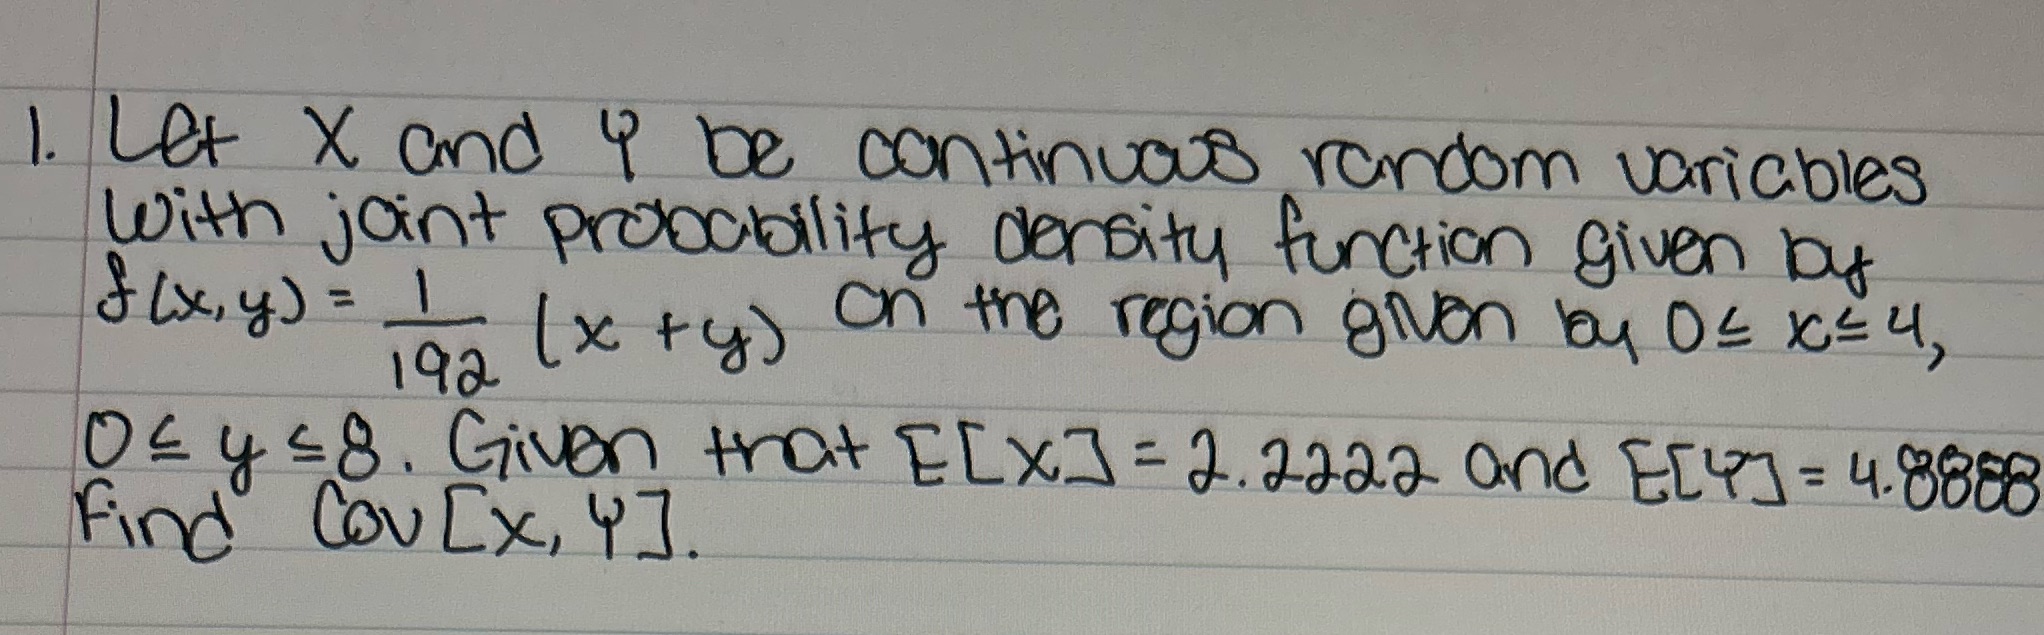 1. Let X and Y be continuous random variables
with joint probability density function given by
f(x,y) = 1/192 (x + y) on the region given by 0 ≤ x ≤ 4,
0 ≤ y ≤ 8. Given that E[X] = 2.2222 and E[Y] = 4.8888
Find Cov[X, Y].